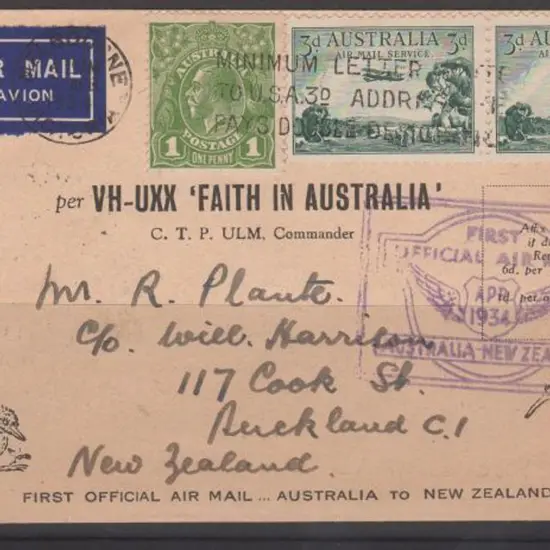 R MAIL
AVION
AUSTRALIA
POSTAGE
1 1
ONE PENNY
3d AUSTRALIA 3d
AIR MAIL SERVICE
3d AU
AIR
MINIMUM LETTER
TO U.S.A. 3D ADDR
PAYS DOUBLE
per VH-UXX 'FAITH IN AUSTRALIA'
C. T. P. ULM, Commander
FIRST
OFFICIAL AIR
APR
1934
AUSTRALIA-NEW ZEA
Affix
if d
Re
6d. per
1d. per
Mr. R. Plante
c/o. Will. Harrison
117 Cook St.
Auckland C.1
New Zealand.
FIRST OFFICIAL AIR MAIL ... AUSTRALIA TO NEW ZEALAND